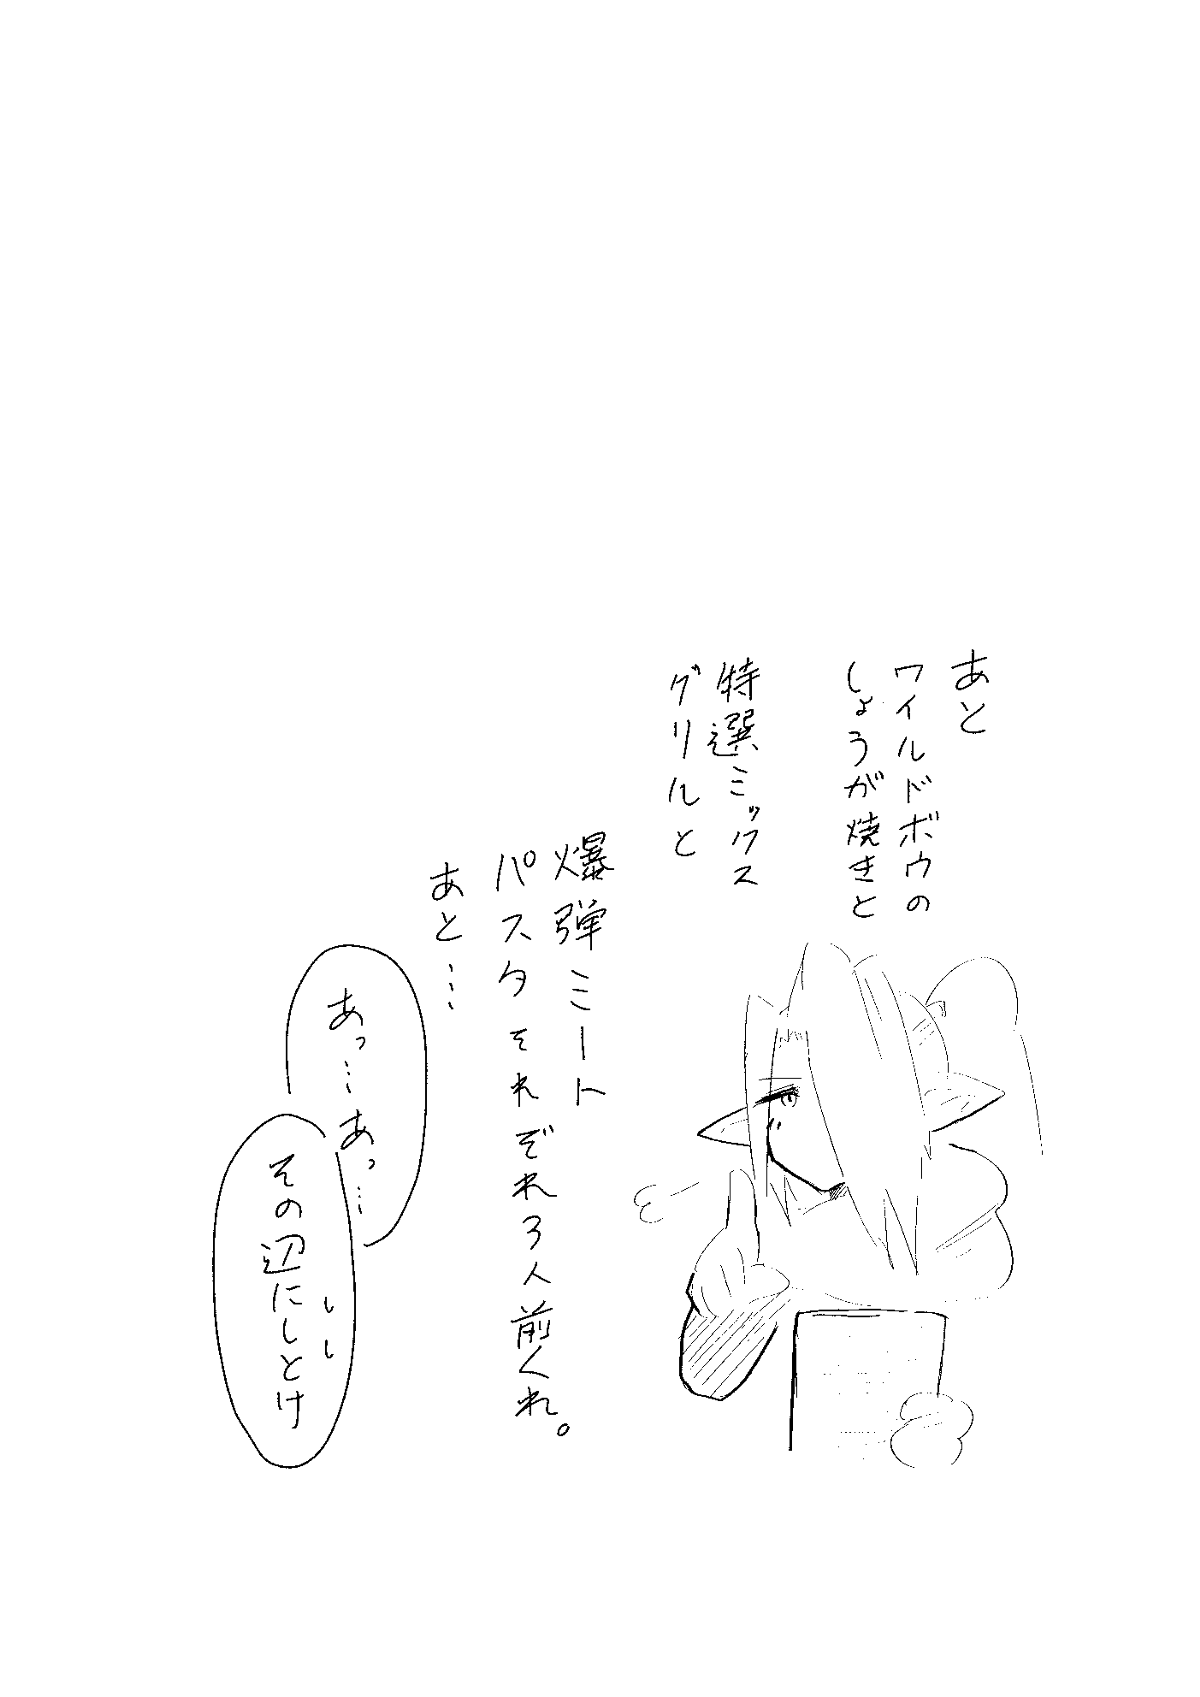 あと
ワイルドボウの
しょうが焼きと
特選ミックス
グリルと
爆弾ミート
パスタそれぞれ3人前くれ。
あと…
あっ…あっ…
その辺にしとけ